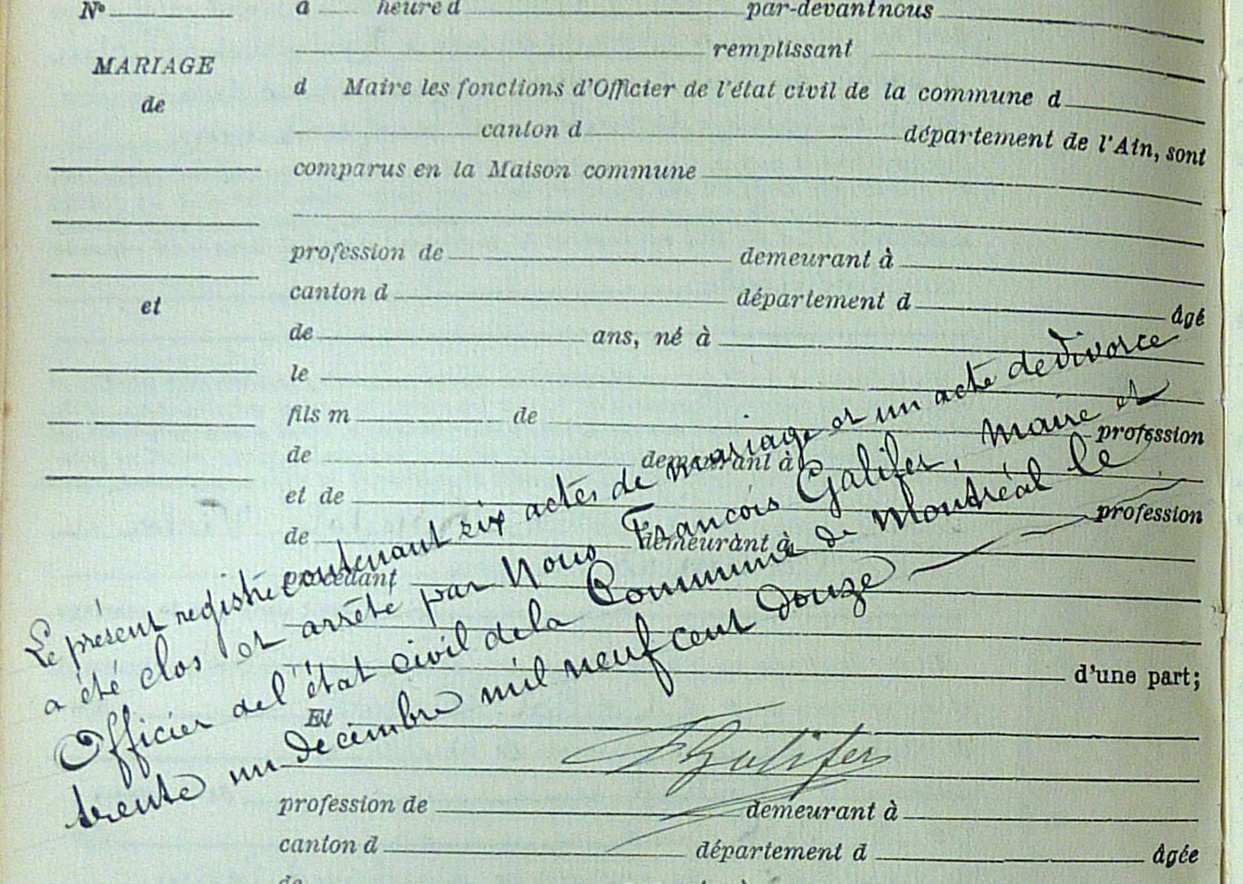 N°
a heure d par-devant nous
remplissant
MARIAGE
d Maire les fonctions d'Officier de l'état civil de la commune d
de
canton d département de l'Ain, sont
comparus en la Maison commune
profession de demeurant à
canton d département d âgé
et
de ans, né à
le
fils m de
profession
de demeurant à
et de
profession
de demeurant à
procédant
Le présent registre contenant six actes de mariage et un acte de divorce
a été clos et arrêté par Nous François Galifer, Maire et
Officier de l'état civil de la Commune de Montréal le
trente un décembre mil neuf cent douze
d'une part;
Et
Galifer
profession de demeurant à
canton d département d âgée
de